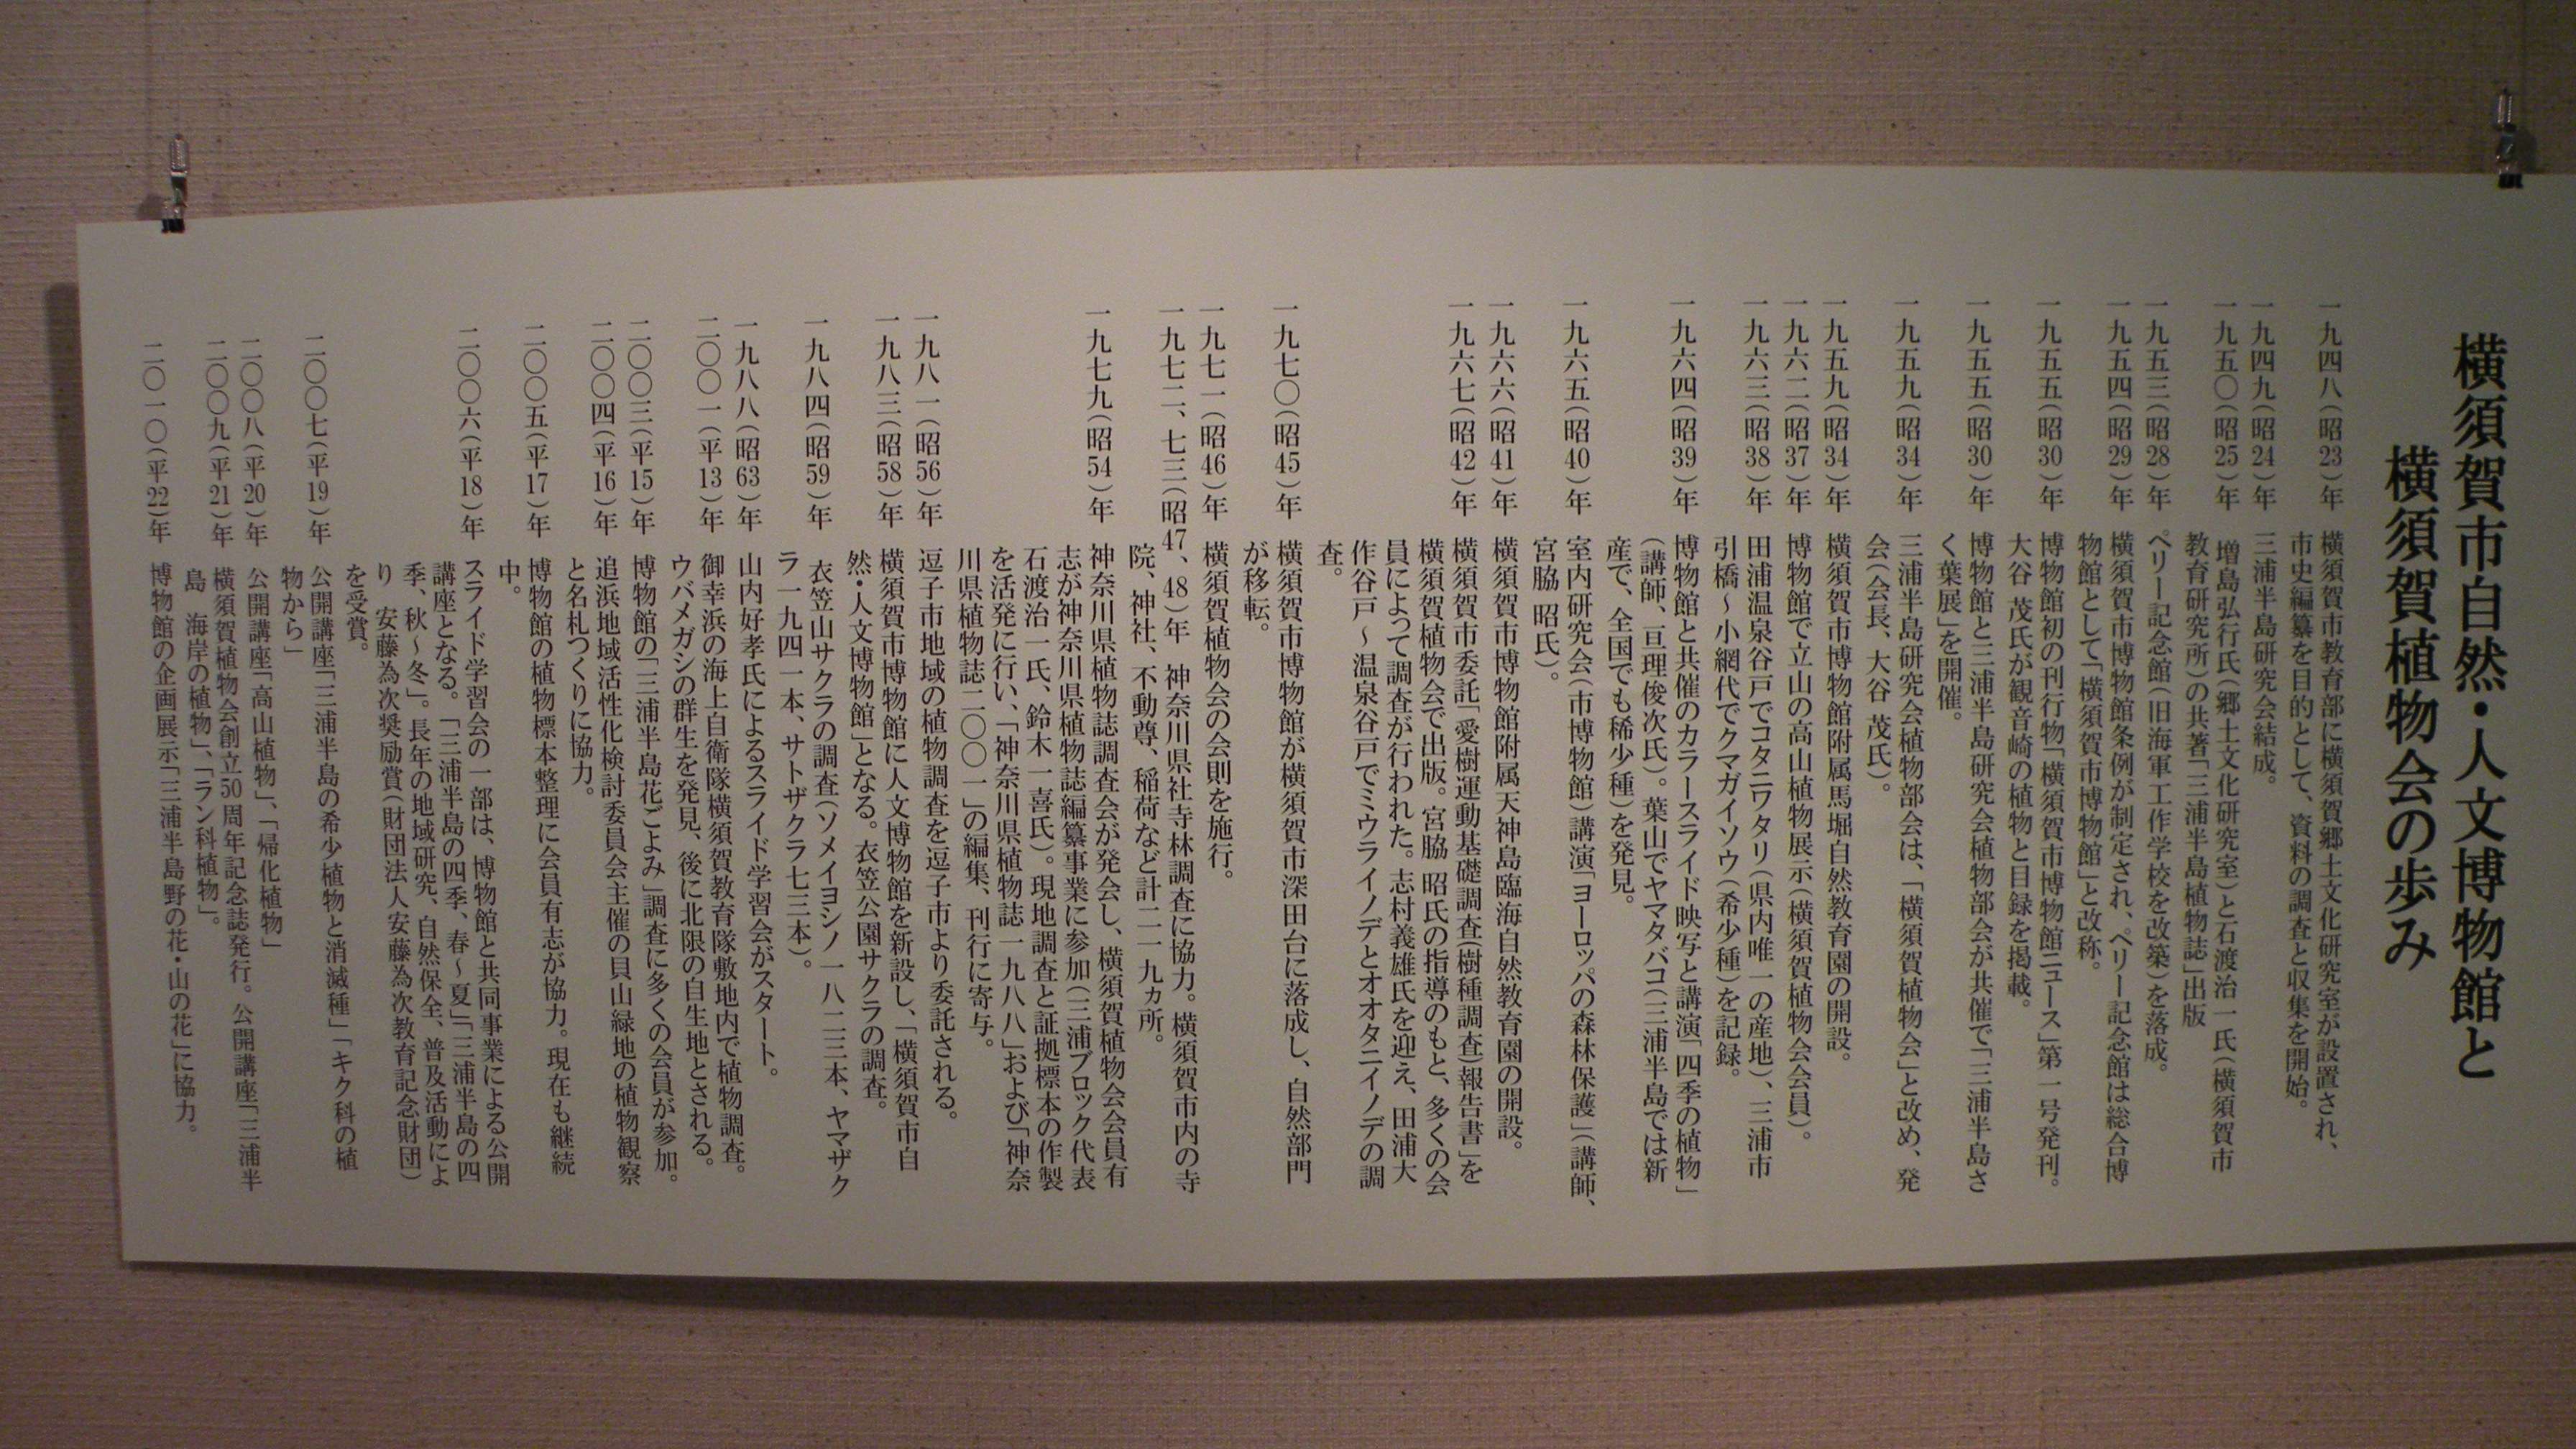 横須賀市自然・人文博物館と
横須賀植物会の歩み
一九四八(昭23)年 横須賀市教育部に横須賀郷土文化研究室が設置され、
市史編纂を目的として、資料の調査と収集を開始。
一九四九(昭24)年 三浦半島研究会結成。
一九五〇(昭25)年 増島弘行氏(郷土文化研究室)と石渡治一氏(横須賀市
教育研究所)の共著「三浦半島植物誌」出版
一九五三(昭28)年 ペリー記念館(旧海軍工作学校を改築)を落成。
一九五四(昭29)年 横須賀市博物館条例が制定され、ペリー記念館は総合博
物館として「横須賀市博物館」と改称。
一九五五(昭30)年 博物館初の刊行物「横須賀市博物館ニュース」第一号発刊。
大谷 茂氏が観音崎の植物と目録を掲載。
一九五五(昭30)年 博物館と三浦半島研究会植物部会が共催で「三浦半島さ
く葉展」を開催。
一九五九(昭34)年 三浦半島研究会植物部会は、「横須賀植物会」と改め、発
会(会長、大谷 茂氏)。
一九五九(昭34)年 横須賀市博物館附属馬堀自然教育園の開設。
一九六二(昭37)年 博物館で立山の高山植物展示(横須賀植物会会員)。
一九六三(昭38)年 田浦温泉谷戸でコタニワタリ(県内唯一の産地)、三浦市
引橋~小網代でクマガイソウ(希少種)を記録。
一九六四(昭39)年 博物館と共催のカラースライド映写と講演「四季の植物」
(講師、亘理俊次氏)。葉山でヤマタバコ(三浦半島では新
産で、全国でも稀少種)を発見。
一九六五(昭40)年 室内研究会(市博物館)講演「ヨーロッパの森林保護」(講師、
宮脇 昭氏)。
一九六六(昭41)年 横須賀市博物館附属天神島臨海自然教育園の開設。
一九六七(昭42)年 横須賀市委託「愛樹運動基礎調査(樹種調査)報告書」を
横須賀植物会で出版。宮脇 昭氏の指導のもと、多くの会
員によって調査が行われた。志村義雄氏を迎え、田浦大
作谷戸~温泉谷戸でミウライノデとオオタニイノデの調
査。
一九七〇(昭45)年 横須賀市博物館が横須賀市深田台に落成し、自然部門
が移転。
一九七一(昭46)年 横須賀植物会の会則を施行。
一九七二、七三(昭47、48)年 神奈川県社寺林調査に協力。横須賀市内の寺
院、神社、不動尊、稲荷など計二一九ヵ所。
一九七九(昭54)年 神奈川県植物誌調査会が発会し、横須賀植物会会員有
志が神奈川県植物誌編纂事業に参加(三浦ブロック代表
石渡治一氏、鈴木一喜氏)。現地調査と証拠標本の作製
を活発に行い、「神奈川県植物誌一九八八」および「神奈
川県植物誌二〇〇一」の編集、刊行に寄与。
一九八一(昭56)年 逗子市地域の植物調査を逗子市より委託される。
一九八三(昭58)年 横須賀市博物館に人文博物館を新設し、「横須賀市自
然・人文博物館」となる。衣笠公園サクラの調査。
一九八四(昭59)年 衣笠山サクラの調査(ソメイヨシノ一八二三本、ヤマザク
ラ一九四一本、サトザクラ七三本)。
一九八八(昭63)年 山内好孝氏によるスライド学習会がスタート。
二〇〇一(平13)年 御幸浜の海上自衛隊横須賀教育隊敷地内で植物調査。
ウバメガシの群生を発見、後に北限の自生地とされる。
二〇〇三(平15)年 博物館の「三浦半島花ごよみ」調査に多くの会員が参加。
二〇〇四(平16)年 追浜地域活性化検討委員会主催の貝山緑地の植物観察
と名札つくりに協力。
二〇〇五(平17)年 博物館の植物標本整理に会員有志が協力。現在も継続
中。
二〇〇六(平18)年 スライド学習会の一部は、博物館と共同事業による公開
講座となる。「三浦半島の四季、春~夏」「三浦半島の四
季、秋~冬」。長年の地域研究、自然保全、普及活動によ
り 安藤為次奨励賞(財団法人安藤為次教育記念財団)
を受賞。
二〇〇七(平19)年 公開講座「三浦半島の希少植物と消滅種」「キク科の植
物から」
二〇〇八(平20)年 公開講座「高山植物」、「帰化植物」
二〇〇九(平21)年 横須賀植物会創立50周年記念誌発行。公開講座「三浦半
島 海岸の植物」、「ラン科植物」。
二〇一〇(平22)年 博物館の企画展示「三浦半島野の花・山の花」に協力。